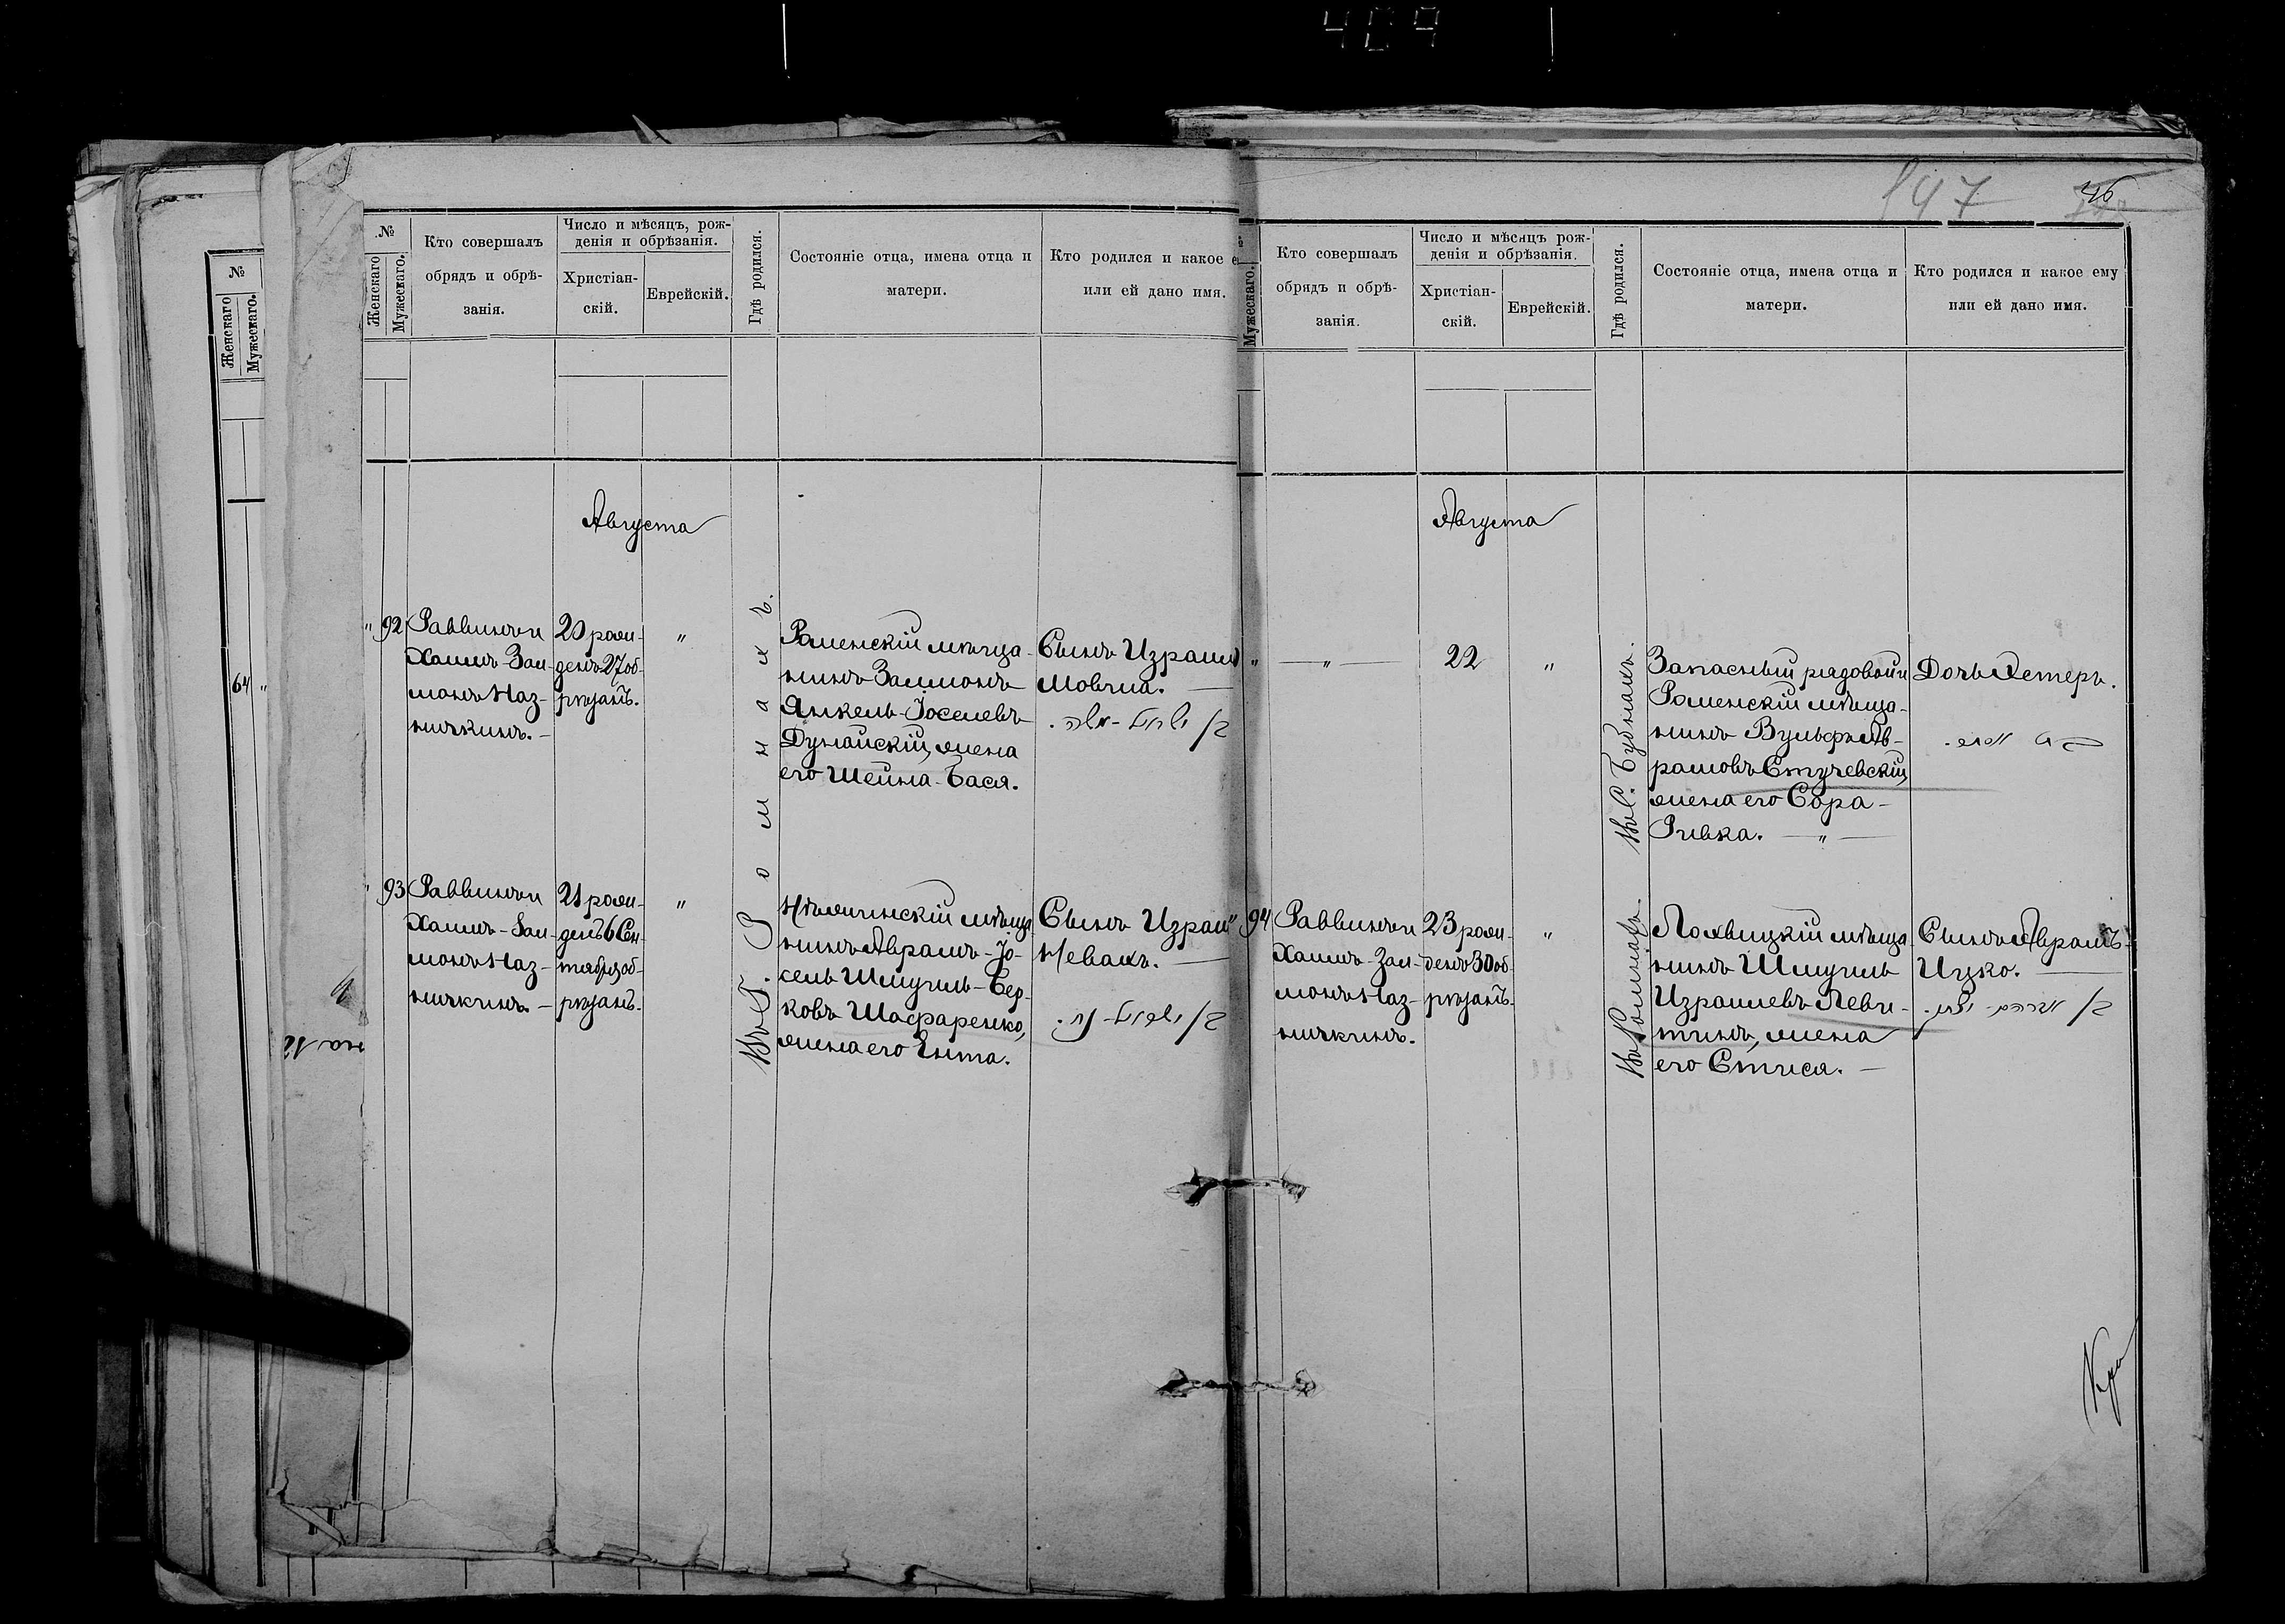 409
147
46
№
Женскаго
Мужескаго.
64 "
№
Женскаго
Мужескаго.
Кто совершалъ
обрядъ и обрѣ-
занія.
Число и мѣсяцъ, рож-
денія и обрѣзанія.
Христіан-
скій.
Еврейскій.
Гдѣ родился.
Состояніе отца, имена отца и
матери.
Кто родился и какое е
или ей дано имя.
Августа
" 92
Раввинъ и
Хаимъ-Зал-
монъ Наз-
ничкинъ. -
20 рож-
денъ 27 об-
рѣзанъ.
"
Въ Г. Ромнахъ.
Роменскій мѣща-
нинъ Залмонъ
Янкель-Іоселевъ
Дунайскій, жена
его Шейна-Бася.
Сынъ Израиль
Мовша.
ז/ ישראל-משה.
" 93
Раввинъ и
Хаимъ-Зал-
монъ Наз-
ничкинъ. -
21 рож-
денъ 6 Сен-
тября об-
рѣзанъ.
"
Нѣжинскій мѣща-
нинъ Аврамъ-Іо-
сель Шмуиль-Бер-
ковъ Шафаренко,
жена его Ента.
Сынъ Израи
Невахъ.
ז/ ישראל-נח.
Мужескаго.
Кто совершалъ
обрядъ и обрѣ-
занія.
Число и мѣсяцъ рож-
денія и обрѣзанія.
Христіан-
скій.
Еврейскій.
Гдѣ родился.
Состояніе отца, имена отца и
матери.
Кто родился и какое ему
или ей дано имя.
Августа
"
— " —
22
"
Въ С. Бубнахъ.
Запасный рядовой и
Роменскій мѣща-
нинъ Вульфъ Ав-
рамовъ Стучевскій,
жена его Сора-
Ривка. — " —
Дочь Хетеръ.
" 94
Раввинъ и
Хаимъ-Зал-
монъ Наз-
ничкинъ.
23 рож-
денъ 30 об-
рѣзанъ.
"
Въ Ромнахъ.
Лохвицкій мѣща-
нинъ Шмуиль
Израилевъ Леви-
тинъ, жена
его Стися. —
Сынъ Аврамъ-
Ицко.
ז/ אברהם-יצחק.